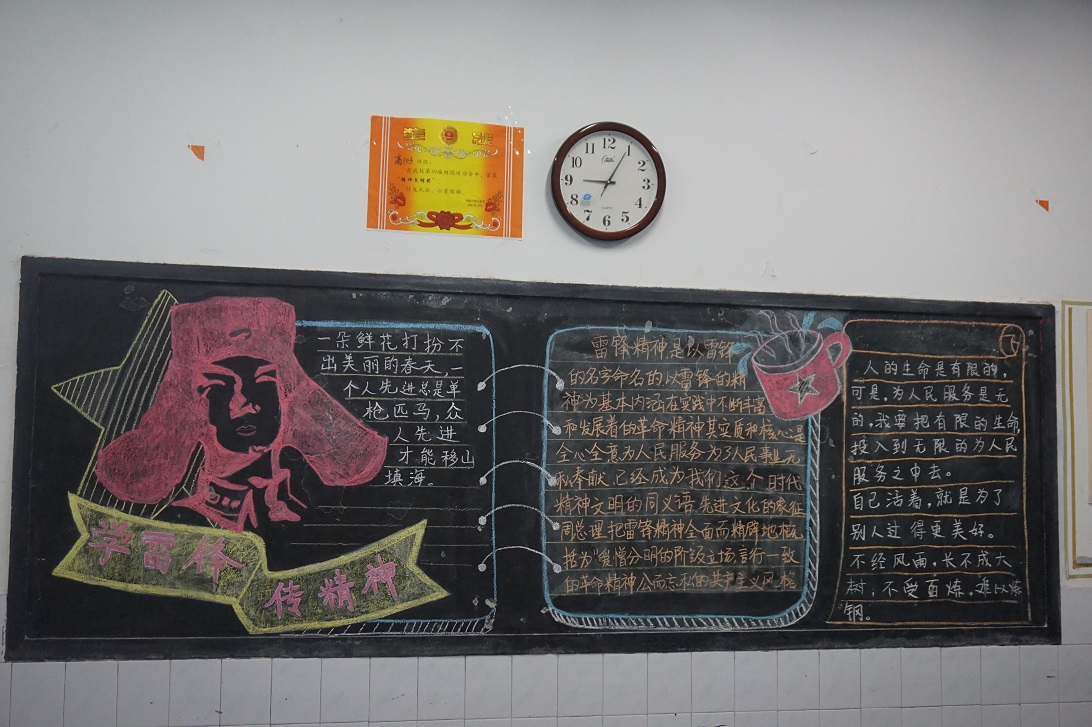 12
11
1
10
2
9
3
8
4
7
5
6
学雷锋
传精神
一朵鲜花打扮不
出美丽的春天,一
个人先进总是单
枪匹马,众
人先进
才能移山
填海。
雷锋精神,是以雷锋
的名字命名的以雷锋的精
神为基本内涵在实践中不断丰富
和发展着的革命精神其实质和核心是
全心全意为人民服务为了人民事业无
私奉献已经成为我们这个时代
精神文明的同义语先进文化的表征
周总理把雷锋精神全面而精辟地概
括为“爱憎分明的阶级立场言行一致
的革命精神公而忘私的共产主义风格
人的生命是有限的,
可是,为人民服务是无
的,我要把有限的生命,
投入到无限的为人民
服务之中去。
自己活着,就是为了
别人过得更美好。
不经风雨,长不成大
树,不受百炼,难以炼
钢。